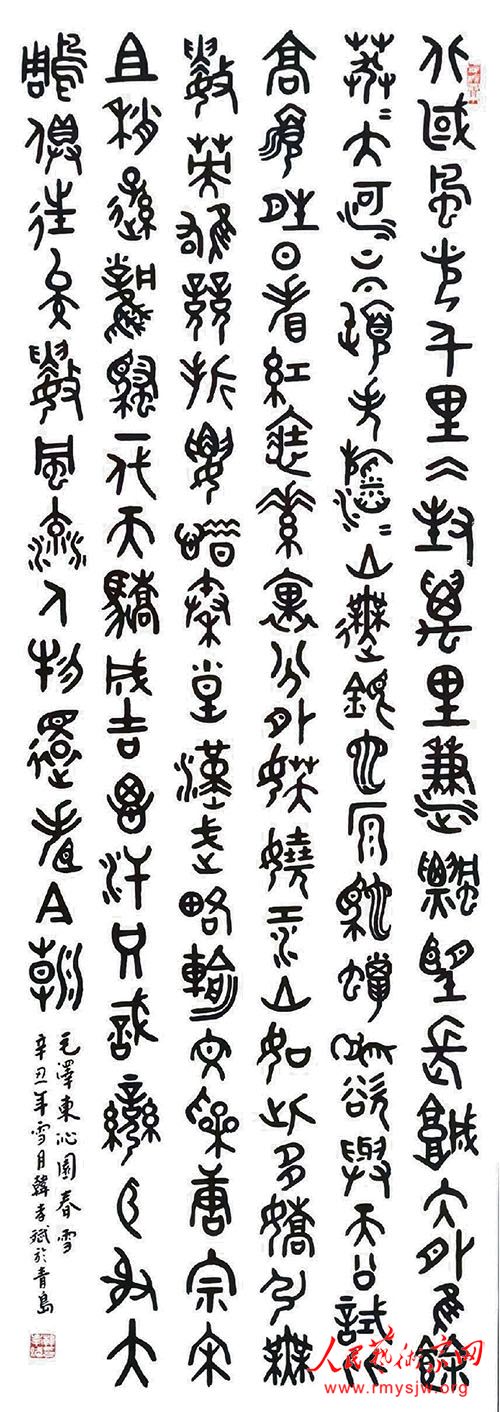 北國風光千里冰封萬里雪飄望長城內外惟餘
莽莽大河上下頓失滔滔山舞銀蛇原馳蠟象欲與天公試比
高須晴日看紅裝素裹分外妖嬈江山如此多嬌引無
數英雄競折腰惜秦皇漢武略輸文采唐宗宋
且稍遜風騷一代天驕成吉思汗只識彎弓射大
鵰俱往矣數風流人物還看今朝
毛澤東沁園春雪
辛丑年雪月韓孝斌於青島
人民艺术家网
www.rmysjw.org